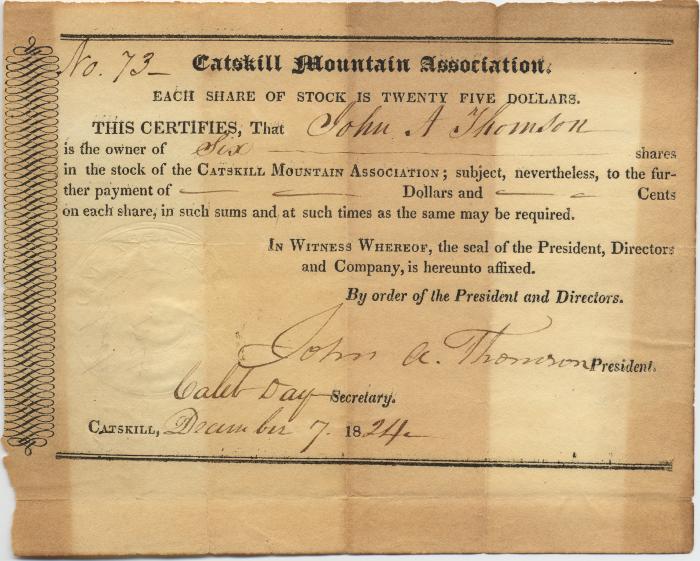 No. 73 Catskill Mountain Association.
EACH SHARE OF STOCK IS TWENTY FIVE DOLLARS.
THIS CERTIFIES, That John A Thomson
is the owner of Six shares
in the stock of the CATSKILL MOUNTAIN ASSOCIATION; subject, nevertheless, to the fur-
ther payment of — — Dollars and — — Cents
on each share, in such sums and at such times as the same may be required.
IN WITNESS WHEREOF, the seal of the President, Directors
and Company, is hereunto affixed.
By order of the President and Directors.
John A. Thomson President.
Caleb Day Secretary.
CATSKILL, December 7. 1824